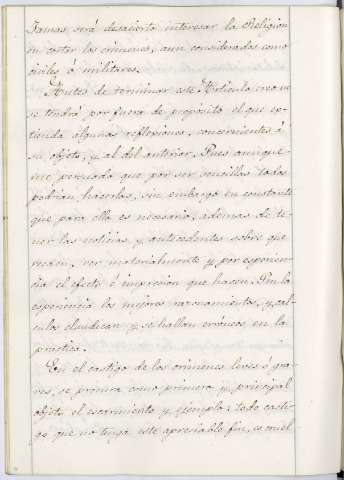 Jamas será desacierto interesar la Religion
en cortar los crimenes, aun considerados como
civiles ó militares.
Antes de terminar este Articulo creo no
se tendrá por fuera de proposito el que ex-
tienda algunas reflexiones, concernientes á
su objeto, y al del anterior. Pues aunque
me persuada que por ser sencillas todos
podrian hacerlas, sin embargo es constante
que para ello es necesario, ademas de te-
ner las noticias, y antecedentes sobre que
recaen, ver materialmente y por esperien-
cia el efecto é impresion que hacen. Sin la
esperiencia los mejores razonamientos, y cal-
culos claudican y se hallan erróneos en la
practica.
En el castigo de los crimenes leves ó gra-
ves, se procura como primero y principal
objeto el escarmiento y egemplo: todo casti-
go que no tenga este apreciable fin, es cruel